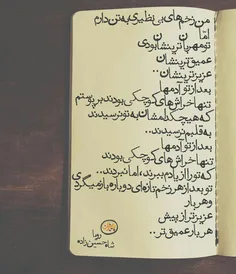 من زخم‌های بی‌نظیری به تن دارم
اما
تو مهربانترینشان بودی
عمیق‌ترینشان
عزیزترینشان..
بعد از تو آدمها
تنها خراش‌های کوچکی بودند بر پوستم
که هیچکدامشان به تو نرسیدند
به قلبم نرسیدند..
بعد از تو آدمها
تنها خراش‌های کوچکی بودند
که تو را از یادم ببرند، اما نبردند...
تو بعد از هر زخم تازه‌ای دوباره باز میگردی
و هر بار
عزیزتر از پیش
هر بار عمیق‌تر..
رویا
شاه‌حسین‌زاده